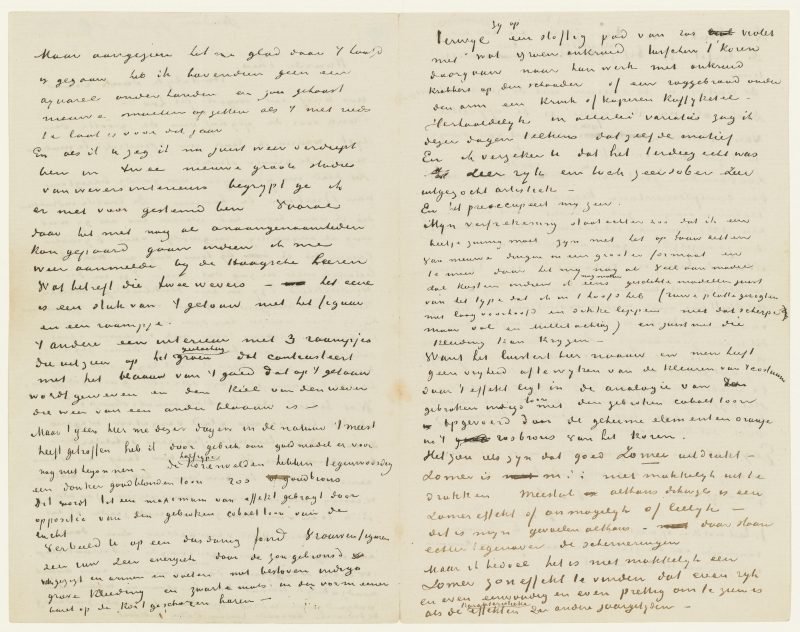 Maar aangezien het nu glad daar 't hoofd
is gegaan heb ik bovendien geen een
aquarel onder handen en zou gehaast
nieuwe moeten opzetten als 't niet reeds
te laat is voor dit jaar
En als ik U zeg ik nu juist weer verdiept
ben in twee nieuwe groote studies
van weversinterieurs begrypt ge ik
er niet voor gestemd ben Vooral
daar het met nog al onaangenaamheden
kon gepaard gaan indien ik me
weer aanmeldde by de Haagsche heeren
Wat betreft die twee wevers – het eene
is een stuk van 't getouw met het figuur
en een raampje.
't andere een interieur met 3 raampjes
die uitzien op het geelachtig groen dat contrasteert
met het blaauw van 't goed dat op 't getouw
wordt geweven en den kiel van den wever
die weer van een ander blaauw is –
Maar 't geen hier me dezer dagen in de natuur 't meest
heeft getroffen heb ik door gebrek aan goed model er voor
nog niet begonnen – De halfrype korenvelden hebben tegenwoordig
een donker goudblonden toon ros of goudbrons
Dit wordt tot een maximum van effekt gebragt door
oppositie van den gebroken cobalttoon van de
lucht
Verbeeld U op een dusdanig fond Vrouwenfiguren
zeer ruw zeer energiek door de zon gebronsd
gezigt en armen en voeten met bestoven indigo
grove kleeding en zwarte muts in den vorm eener
baret op de kort geschoren haren –
Terwyl zy op een stoffig pad van ros violet
met wat groen onkruid tusschen 't koren
doorgaan naar hun werk met onkruid
krabbers op den schouder of een roggebrood onder
den arm een kruik of koperen koffyketel –
Herhaaldelyk in allerlei variaties zag ik
dezer dagen telkens datzelfde motief
En ik verzeker U dat het terdeeg echt was
Zeer ryk en toch zeer sober zeer
uitgezocht artistiek –
En 't preoccupeert my zeer.
Myn verfrekening staat echter zoo dat ik een
beetje zuinig moet zyn met het op touw zetten
van nieuwe dingen in een grooter formaat en
te meer daar het my nog al veel aan modellen
dat kosten indien ik maar eens geschikte modellen juist
van het type dat ik in 't hoofd heb (ruwe platte gezigten
met laag voorhoofd en dikke lippen niet dat scherpe
maar vol en Milletachtig) en juist met die
kleeding kan krygen –
Want het luistert hier naauw en men heeft
geen vryheid aftewyken van de kleuren van 't costuum
daar 't effekt ligt in de analogie van den
gebroken indigo toon met den gebroken cobalttoon
opgevoerd door de geheime elementen oranje
in 't rosbrons van het koren.
Het zou iets zyn dat goed Zomer uitdrukt –
Zomer is m.i. niet makkelyk uit te
drukken meestal althans dikwyls is een
zomereffekt of onmogelyk of leelyk –
dit is myn gevoelen althans – daar staan
echter tegenover de schemeringen
Maar ik bedoel het is niet makkelyk een
Zomer zon effekt te vinden dat even ryk
en even eenvoudig en even prettig om te zien is
als de karakteristieke effekten der andere jaargetyden –